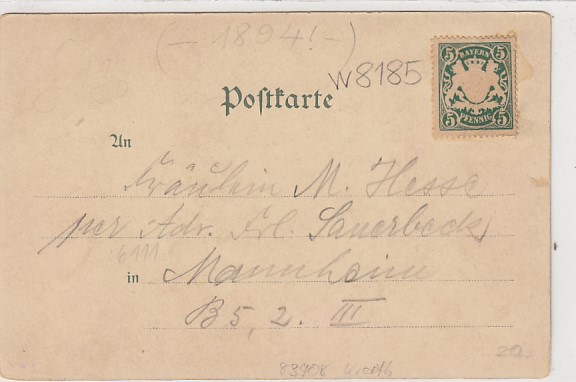 (- 1894! -)
W8185
5 BAYERN 5
5 PFENNIG 5
Postkarte
An
Fräulein M. Hesse
per Adr. Frl. Sauerbeck
6111
in Mannheim
B5, 2. III
83908
20.-